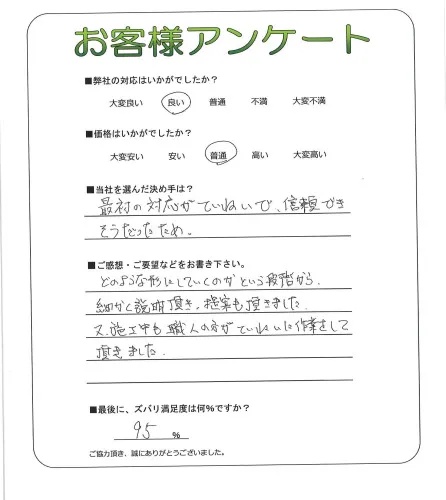 お客様アンケート
■弊社の対応はいかがでしたか?
大変良い 良い 普通 不満 大変不満
■価格はいかがでしたか?
大変安い 安い 普通 高い 大変高い
■当社を選んだ決め手は?
最初の対応がていねいで、信頼でき
そうだったため。
■ご感想・ご要望などをお書き下さい。
どのような形にしていくのかという段階から、
細かく説明頂き、提案も頂きました。
又、施工中も職人の方がていねいに作業をして
頂きました。
■最後に、ズバリ満足度は何%ですか?
95 %
ご協力頂き、誠にありがとうございました。